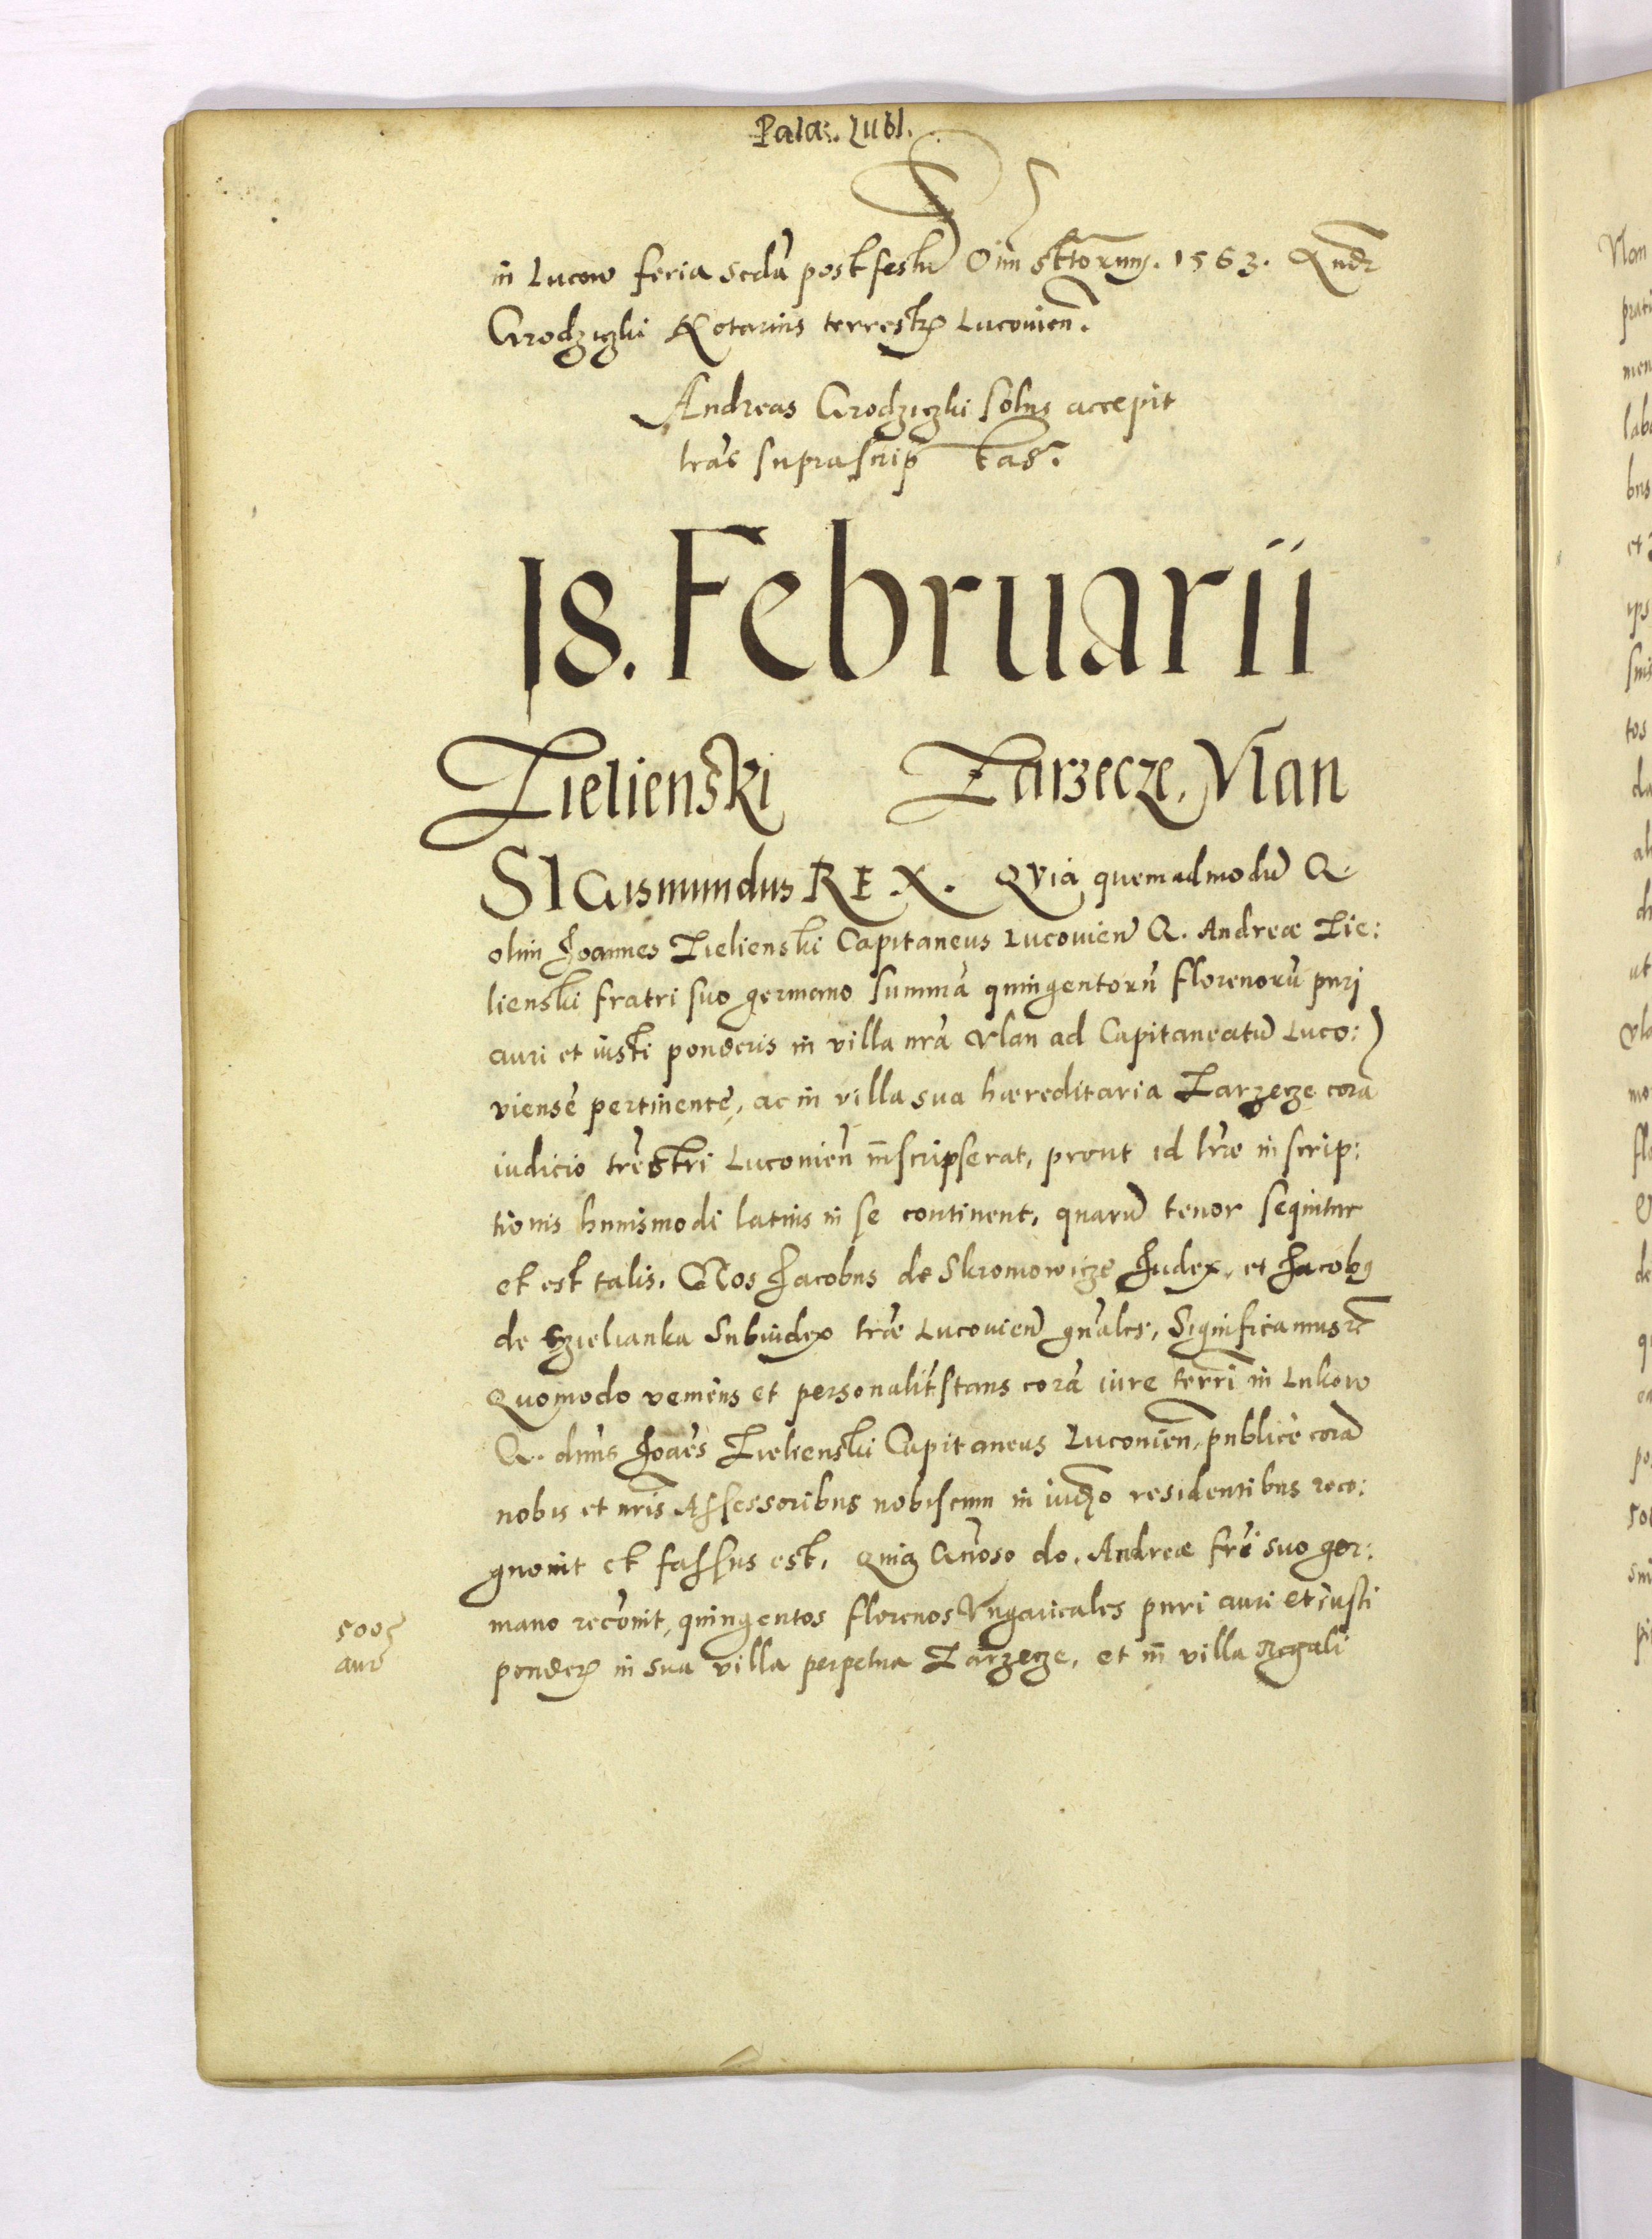 Pala: Lubl.
in Lucow feria scda post festu Oim sttorum. 1563. Andr
Grodziczki Notarius terrestr Lucovien.
Andreas Grodziczki solus accepit
lras suprascriptas.
18. Februarii
Zielienski Zarzecze, Vlan
SIGismundus REX. QVia quemadmodu G.
olim Joannes Zielienski Capitaneus Lucovien G. Andreæ Zie:
lienski fratri suo germano summa quingentoru florenoru puri
auri et iusti ponderis in villa nra Vlan ad Capitaneatu Luco:
viense pertinente, ac in villa sua hæreditaria Zarzecze cora
iudicio trestri Lucovien inscripserat, prout id lræ inscrip:
tionis huiusmodi latius in se continent, quaru tenor sequitur
et est talis. Nos Jacobus de Skromowicze Judex, et Jacobus
de Czielianka Subiudex træ Lucovien gnales, Significamus etc
Quomodo veniens et personalit stans cora iure terri in Lukow
G. dnus Joaes Zielienski Capitaneus Lucovien, publice cora
nobis et nris Assessoribus nobiscum in iudo residentibus reco:
gnovit et fassus est, Quia Gnoso do. Andreæ fri suo ger:
mano recovit, quingentos florenos Vngaricales puri auri et iusti
ponder in sua villa perpetua Zarzecze, et in villa Regali
500
aur